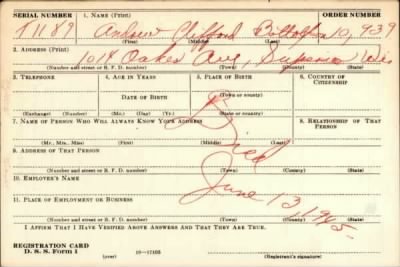 SERIAL NUMBER 1. NAME (Print) ORDER NUMBER
T1189 Andrew Clifford 10,939
(First) (Middle) (Last)
2. ADDRESS (Print)
1014 Oakes Ave, Superior Wis
(Number and street or R. F. D. number) (Town) (County) (State)
3. TELEPHONE 4. AGE IN YEARS 5. PLACE OF BIRTH 6. COUNTRY OF CITIZENSHIP
DATE OF BIRTH (Town or county)
(Exchange) (Number) (Mo.) (Day) (Yr.) (State or country)
7. NAME OF PERSON WHO WILL ALWAYS KNOW YOUR ADDRESS 8. RELATIONSHIP OF THAT PERSON
(Mr., Mrs., Miss) (First) (Middle) (Last)
9. ADDRESS OF THAT PERSON
Died
(Number and street or R. F. D. number) (Town) (County) (State)
10. EMPLOYER'S NAME
June 13, 1945
11. PLACE OF EMPLOYMENT OR BUSINESS
(Number and street or R. F. D. number) (Town) (County) (State)
I AFFIRM THAT I HAVE VERIFIED ABOVE ANSWERS AND THAT THEY ARE TRUE.
REGISTRATION CARD
D. S. S. Form 1 16—17105 (Registrant's signature)